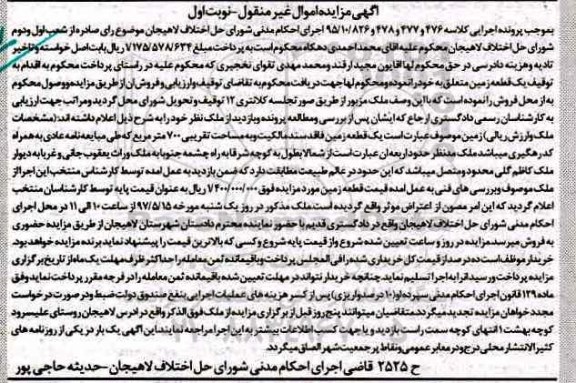 آگهی مزایده اموال غیر منقول-نوبت اول
بموجب پرونده اجرایی کلاسه ۴۷۶ و ۴۷۷ و ۴۷۸ و ۹۵/۱۰/۸۲۶ اجرای احکام مدنی شورای حل اختلاف لاهیجان موضوع رای صادره از شعب اول و دوم
شورای حل اختلاف لاهیجان محکوم علیه اقای محمد احمدی دهکاه محکوم است به پرداخت مبلغ ۷۱۷۵/۵۷۸/۶۳۴ ریال بابت اصل خواسته و تاخیر
تادیه و هزینه دادرسی در حق محکوم لها قانون مجید ارفند و محمد مهدی تقوای نخجیری که محکوم علیه در راستای پرداخت محکوم به اقدام به
توقیف یک قطعه زمین متعلق به خود را نموده و محکوم لها جهت دریافت محکوم به تقاضای توقیف و ارزیابی و فروش ان از طریق مزایده و وصول محکوم
به از محل فروش را نموده است که با این وصف ملک مزبور از طریق صورتجلسه کلانتری ۱۲ توقیف و تحویل شورای محل گردید و مراتب جهت ارزیابی
به کارشناسان رسمی دادگستری ارجاع که ایشان پس از بررسی و مطالعه پرونده و بازدید از ملک نظر خود را به شرح ذیل اعلام داشته اند:(مشخصات
ملک و ارزش ریالی) زمین موصوف عبارت است یک قطعه زمین فاقد سند مالکیت و به مساحت تقریبی ۷۰۰ متر مربع که طی مبایعه نامه عادی به همراه
کدرهگیری میباشد ملک مدنظر حدود اربعه ان عبارت است از شمالا بطول به کوچه شرقا به راه چشمه جنوبا به ملک وراث یعقوب جانی و غربا به دیوار
ملک کاظم گلی محدود و متصل میباشد که این حدود در عالم طبیعت مطابقت دارد که ضمن بازدید به عمل امده توسط کارشناس منتخب این اجرا از
ملک موصوف و بررسی های فنی به عمل امده قیمت قطعه زمین مورد مزایده فوق ۷۴۰۰/۰۰۰/۰۰۰ ریال به عنوان قیمت پایه توسط کارشناسان منتخب
اعلام گردید که این امر مصون از اعتراض موثر واقع گردیده است ملک مذکور در روز یک شنبه مورخه ۹۷/۵/۱۵ از ساعت ۱۰ الی ۱۱ در محل اجرای
احکام مدنی شورای حل اختلاف لاهیجان واقع در دادگستری قدیم با حضور نماینده محترم دادستان شهرستان لاهیجان از طریق مزایده حضوری
به فروش میرسد مزایده در روز و ساعت تعیین شده شروع و از قیمت پایه شروع و کسی که بالاترین قیمت را پیشنهاد نماید برنده مزایده خواهد بود.
خریدار موظف است ده درصد از قیمت کل خریداری شده را فی المجلس پرداخت و باقیمانده ثمن معامله را حداکثر ظرف مهلت یک ماه از تاریخ برگزاری
مزایده پرداخت و رسید انرا به اجرا تسلیم نماید. چنانچه خریدار نتواند در مهلت تعیین شده باقیمانده ثمن معامله را در فرجه مقرر پرداخت نماید وفق
ماده ۱۲۹ قانون اجرای احکام مدنی سپرده او (۱۰ درصد واریزی) پس از کسر هزینه های عملیات اجرایی بنفع صندوق دولت ضبط و در صورت درخواست
مجدد خواهان مزایده تجدید میگردد. متقاضیان میتوانند پنج روز قبل از برگزاری مزایده از ملک فوق الذکر واقع در ادرس لاهیجان روستای علیسرود
کوچه بهشت ۱ انتهای کوچه سمت راست بازدید و یا جهت کسب اطلاعات بیشتر به این اجرا مراجعه نمایند این آگهی یک بار در یکی از روزنامه های
کثیرالانتشار محلی درج و در معابر عمومی و نقاط پر جمعیت شهر الصاق میگردد.
ح ۲۵۲۵ قاضی اجرای احکام مدنی شورای حل اختلاف لاهیجان-حدیثه حاجی پور